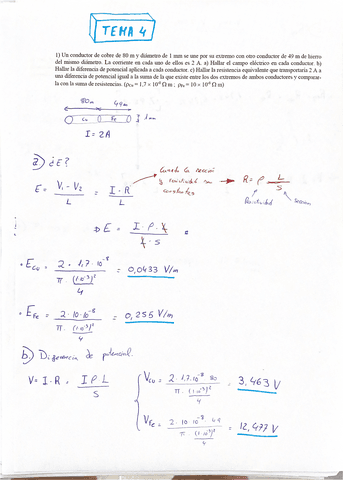 TEMA 4
1) Un conductor de cobre de 80 m y diámetro de 1 mm se une por su extremo con otro conductor de 49 m de hierro
del mismo diámetro. La corriente en cada uno de ellos es 2 A. a) Hallar el campo eléctrico en cada conductor. b)
Hallar la diferencia de potencial aplicada a cada conductor. c) Hallar la resistencia equivalente que transportaría 2 A a
una diferencia de potencial igual a la suma de la que existe entre los dos extremos de ambos conductores y comparar-
la con la suma de resistencias. (ρCu = 1,7 × 10⁻⁸ Ω m ; ρFe = 10 × 10⁻⁸ Ω m)
80m 49m
Cu Fe 1mm
I = 2A
a) ¿E?
Cuando la sección
y resistividad son
constantes
E = V₁ - V₂ / L = I · R / L
R = ρ L / S
Resistividad sección
E = I · ρ · L / L · S
• E Cu = 2 · 1,7 · 10⁻⁸ / π · (1·10⁻³)² / 4 = 0,0433 V/m
• E Fe = 2 · 10 · 10⁻⁸ / π · (1·10⁻³)² / 4 = 0,255 V/m
b) Diferencia de potencial.
V = I · R = I ρ L / S
V Cu = 2 · 1,7 · 10⁻⁸ · 80 / π · (1·10⁻³)² / 4 = 3,463 V
V Fe = 2 · 10 · 10⁻⁸ · 49 / π · (1·10⁻³)² / 4 = 12,477 V